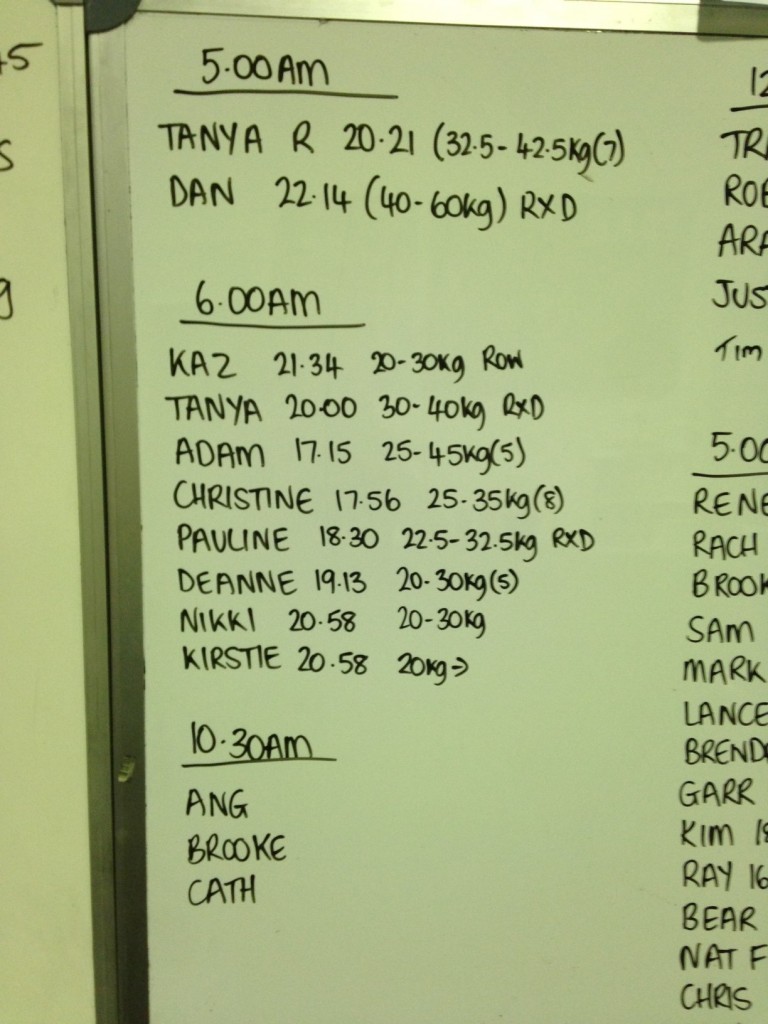 5.00AM
TANYA R 20.21 (32.5-42.5kg(7)
DAN 22.14 (40-60kg) RXD
6.00AM
KAZ 21.34 20-30kg ROW
TANYA 20.00 30-40kg RXD
ADAM 17.15 25-45kg(5)
CHRISTINE 17.56 25-35kg(8)
PAULINE 18.30 22.5-32.5kg RXD
DEANNE 19.13 20-30kg(5)
NIKKI 20.58 20-30kg
KIRSTIE 20.58 20kg→
10.30AM
ANG
BROOKE
CATH
12
TRA
ROB
ARA
JUS
TIM
5.00
RENE
RACH
BROOK
SAM
MARK
LANCE
BREND
GARR
KIM 18
RAY 16
BEAR
NAT F
CHRIS